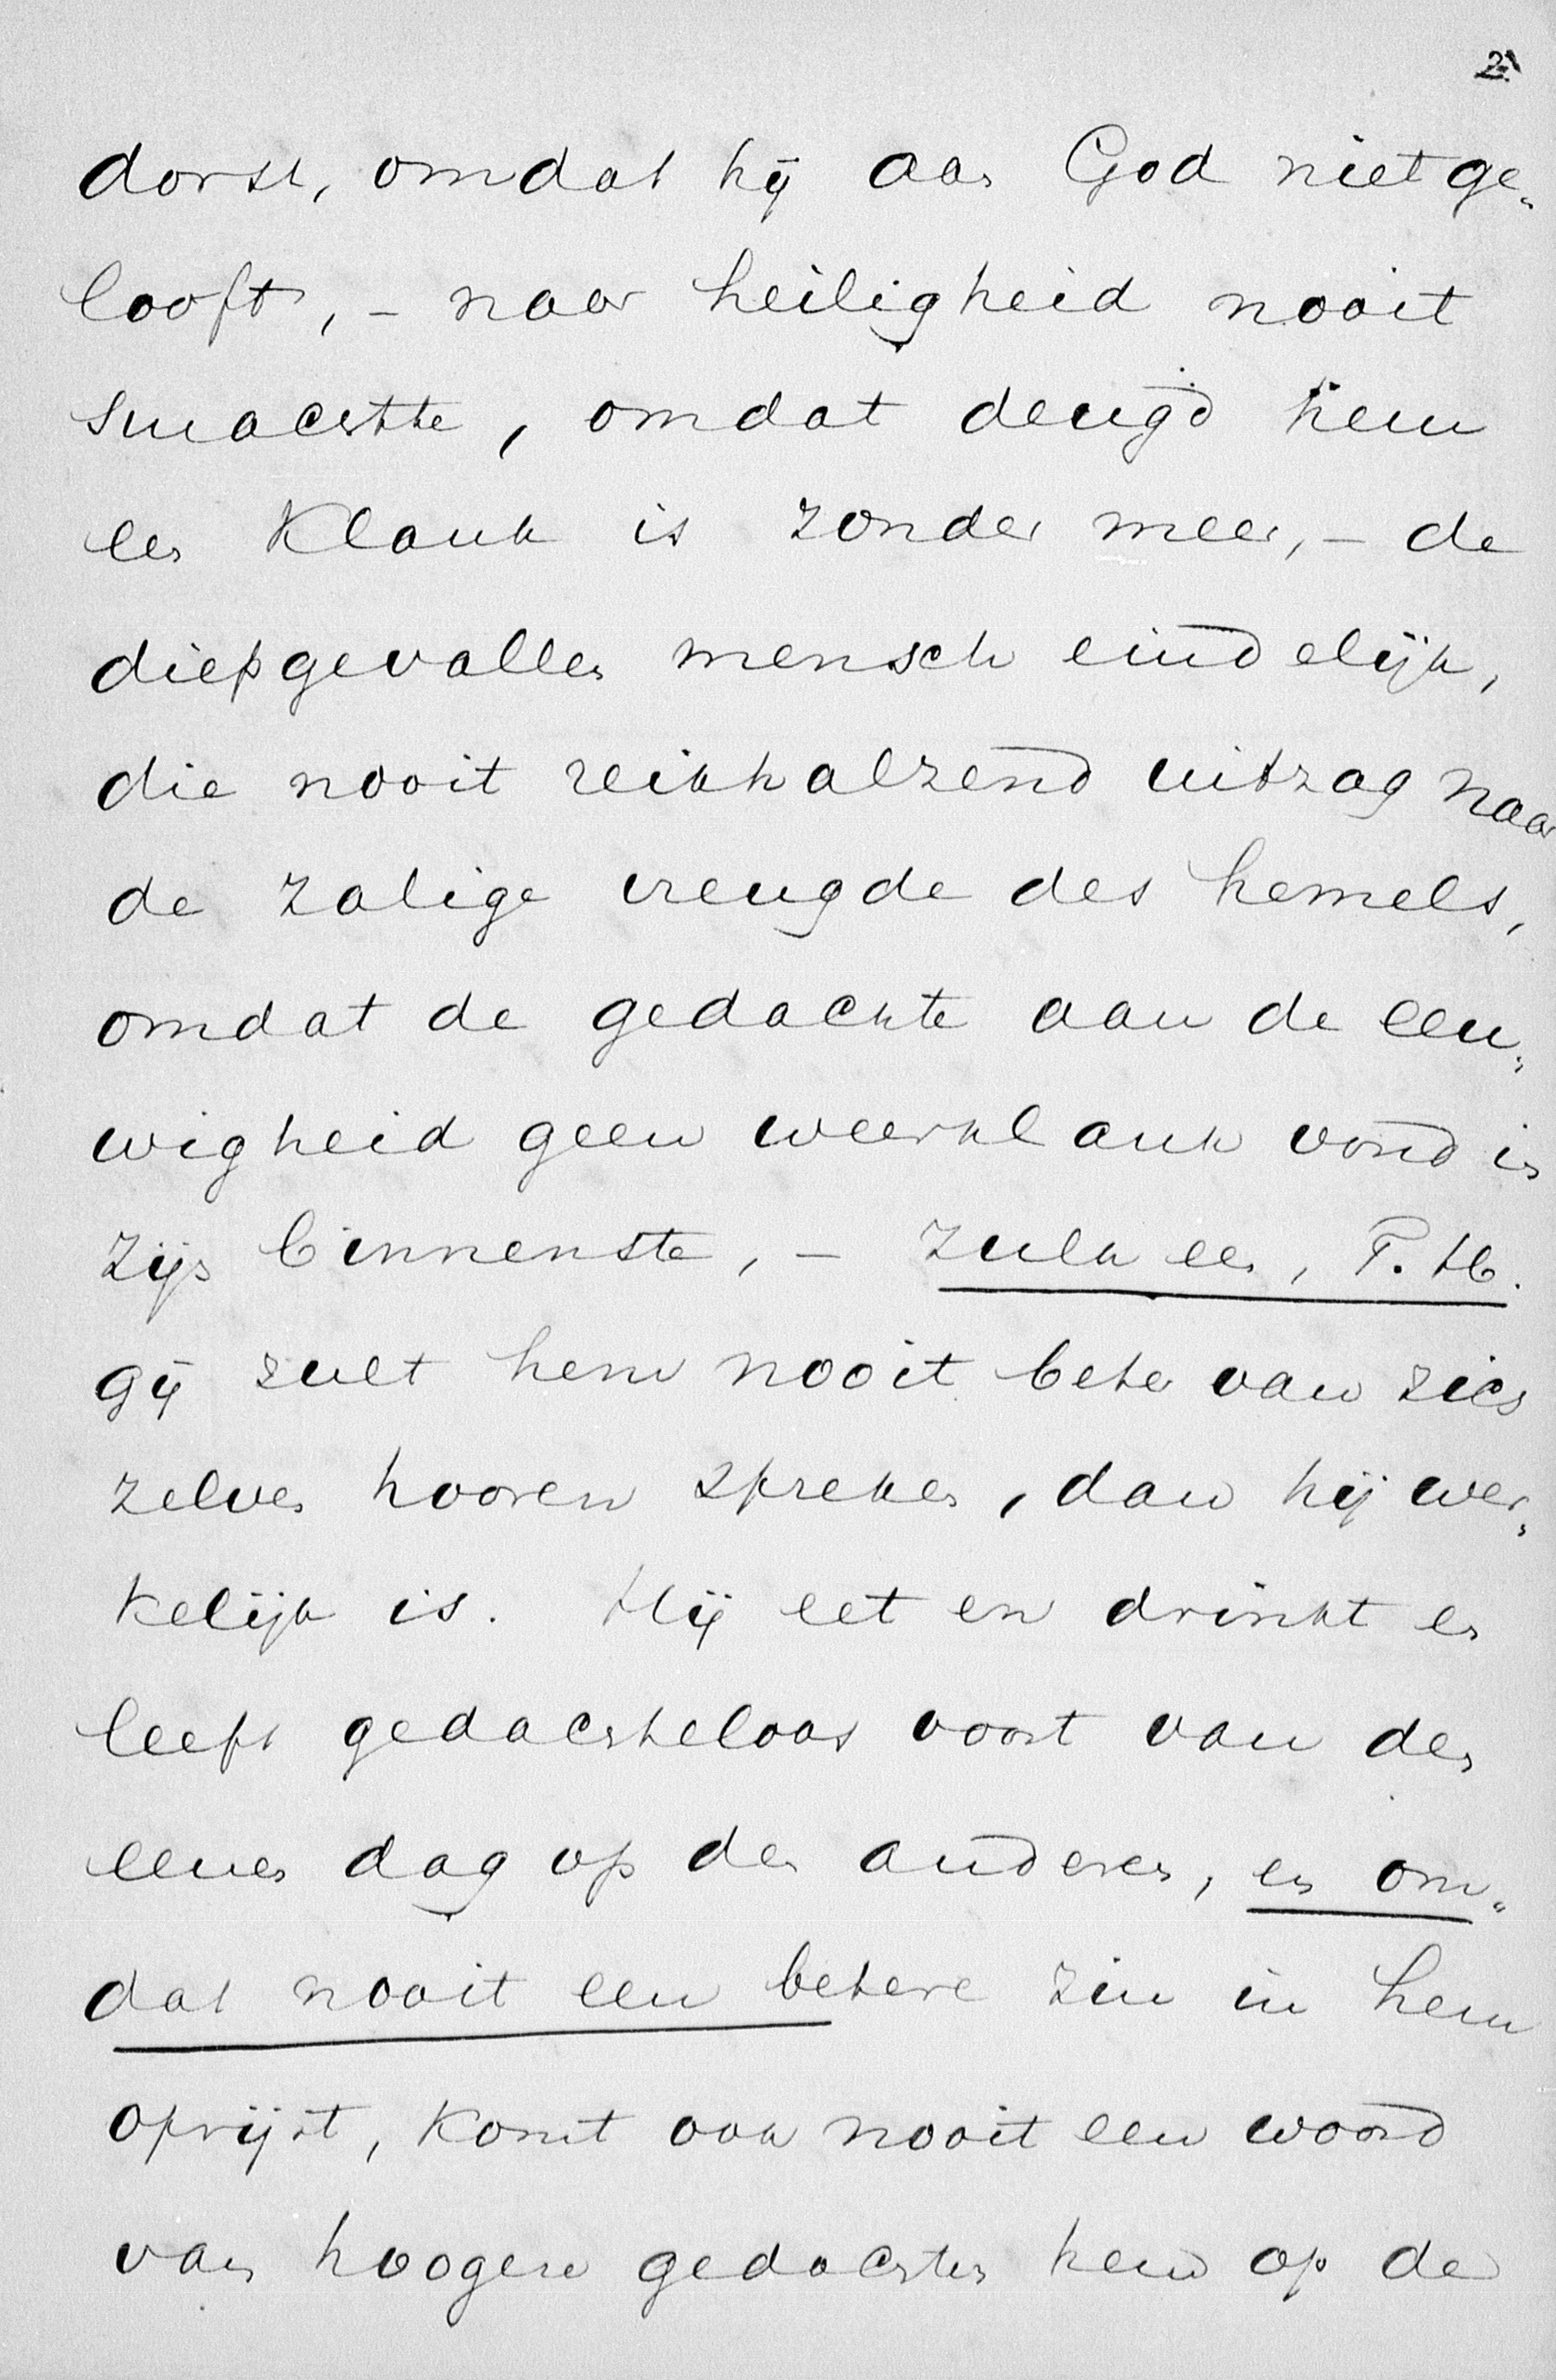 2.
dorst, omdat hij aan God niet ge„
looft, – naar heiligheid nooit
smachtte, omdat deugd hem
een klank is zonder meer, – de
diepgevallen mensch eindelijk,
die nooit reikhalzend uitzag naar
de zalige vreugde des hemels,
omdat de gedachte aan de eeu„
wigheid geen weerklank vond in
zijn binnenste, – zulk een, T. H.
gij zult hem nooit beter van zich
zelven hooren spreken, dan hij wer„
kelijk is. Hij eet en drinkt en
leeft gedachteloos voort van den
eenen dag op den anderen, en om„
dat nooit een betere zin in hem
oprijst, komt ook nooit een woord
van hoogere gedachten hem op de